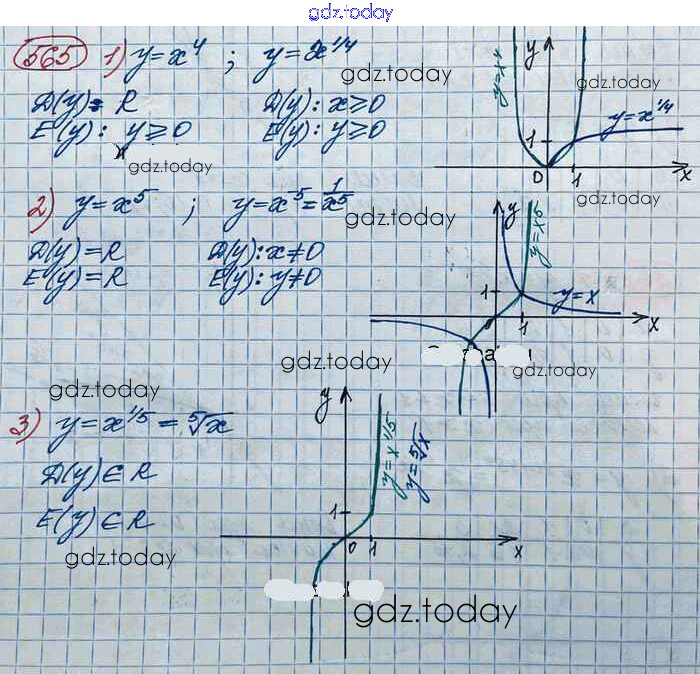 gdz.today
565 1) y = x⁴ ; y = x^1/4
D(y) = R D(y): x ≥ 0
E(y): y ≥ 0 E(y): y ≥ 0
gdz.today
gdz.today
gdz.today
y
y = x⁴
y = x^1/4
1
0 1 x
gdz.today
2) y = x⁵ ; y = x⁻⁵ = 1/x⁵
gdz.today
D(y) = R D(y): x ≠ 0
E(y) = R E(y): y ≠ 0
y
y = x⁵
1
y = x
1 x
gdz.today
gdz.today
gdz.today
3) y = x^1/5 = ⁵√x
D(y) ∈ R
E(y) ∈ R
gdz.today
y
y = x^1/5
y = ⁵√x
1
0 1 x
gdz.today